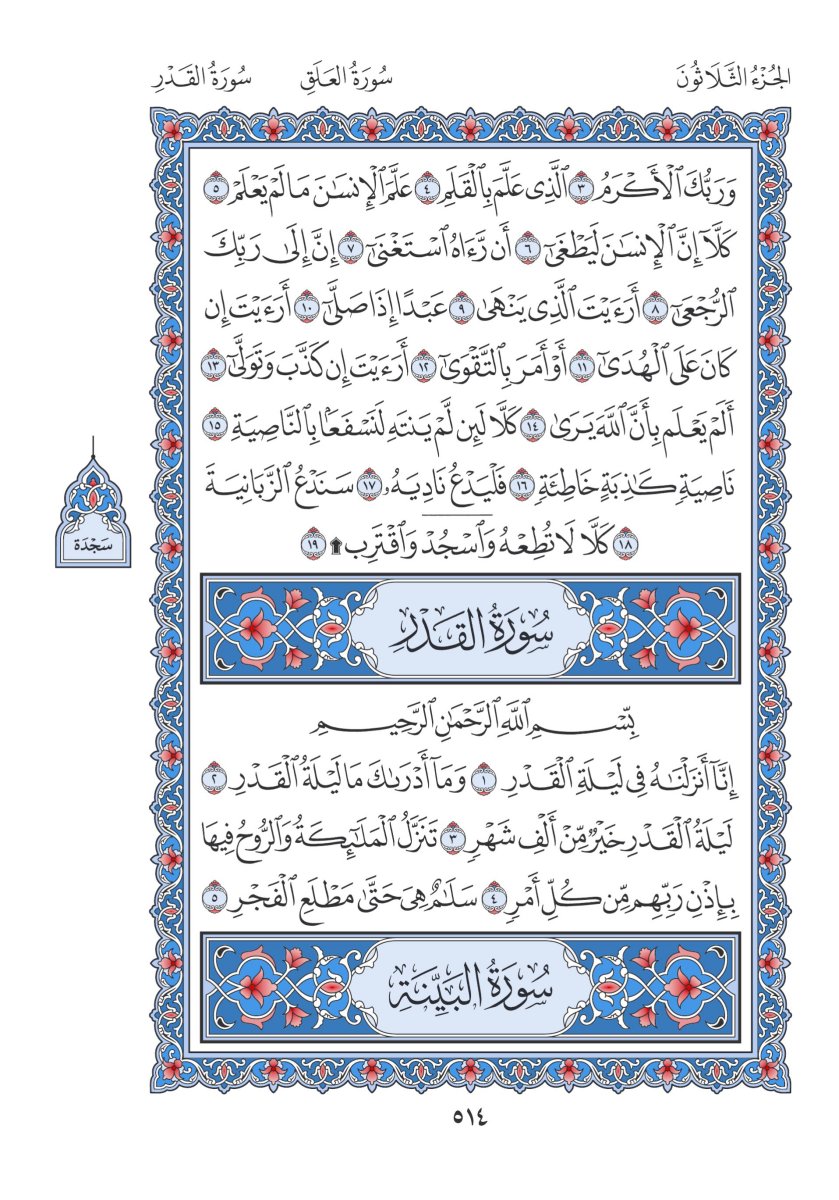 الجُزْءُ الثَّلَاثُونَ سُورَةُ العَلَقِ سُورَةُ القَدْرِ
وَرَبُّكَ ٱلْأَكْرَمُ ٣ ٱلَّذِى عَلَّمَ بِٱلْقَلَمِ ٤ عَلَّمَ ٱلْإِنسَٰنَ مَا لَمْ يَعْلَمْ ٥
كَلَّآ إِنَّ ٱلْإِنسَٰنَ لَيَطْغَىٰٓ ٦ أَن رَّءَاهُ ٱسْتَغْنَىٰٓ ٧ إِنَّ إِلَىٰ رَبِّكَ
ٱلرُّجْعَىٰٓ ٨ أَرَءَيْتَ ٱلَّذِى يَنْهَىٰ ٩ عَبْدًا إِذَا صَلَّىٰٓ ١٠ أَرَءَيْتَ إِن
كَانَ عَلَى ٱلْهُدَىٰٓ ١١ أَوْ أَمَرَ بِٱلتَّقْوَىٰٓ ١٢ أَرَءَيْتَ إِن كَذَّبَ وَتَوَلَّىٰٓ ١٣
أَلَمْ يَعْلَم بِأَنَّ ٱللَّهَ يَرَىٰ ١٤ كَلَّا لَئِن لَّمْ يَنتَهِ لَنَسْفَعًۢا بِٱلنَّاصِيَةِ ١٥
نَاصِيَةٍ كَٰذِبَةٍ خَاطِئَةٍ ١٦ فَلْيَدْعُ نَادِيَهُۥ ١٧ سَنَدْعُ ٱلزَّبَانِيَةَ
١٨ كَلَّا لَا تُطِعْهُ وَٱسْجُدْ وَٱقْتَرِب ۩ ١٩
سَجْدَة
سُورَةُ القَدْرِ
بِسْمِ ٱللَّهِ ٱلرَّحْمَٰنِ ٱلرَّحِيمِ
إِنَّآ أَنزَلْنَٰهُ فِى لَيْلَةِ ٱلْقَدْرِ ١ وَمَآ أَدْرَىٰكَ مَا لَيْلَةُ ٱلْقَدْرِ ٢
لَيْلَةُ ٱلْقَدْرِ خَيْرٌ مِّنْ أَلْفِ شَهْرٍ ٣ تَنَزَّلُ ٱلْمَلَٰٓئِكَةُ وَٱلرُّوحُ فِيهَا
بِإِذْنِ رَبِّهِم مِّن كُلِّ أَمْرٍ ٤ سَلَٰمٌ هِىَ حَتَّىٰ مَطْلَعِ ٱلْفَجْرِ ٥
سُورَةُ البَيِّنَةِ
٥١٤